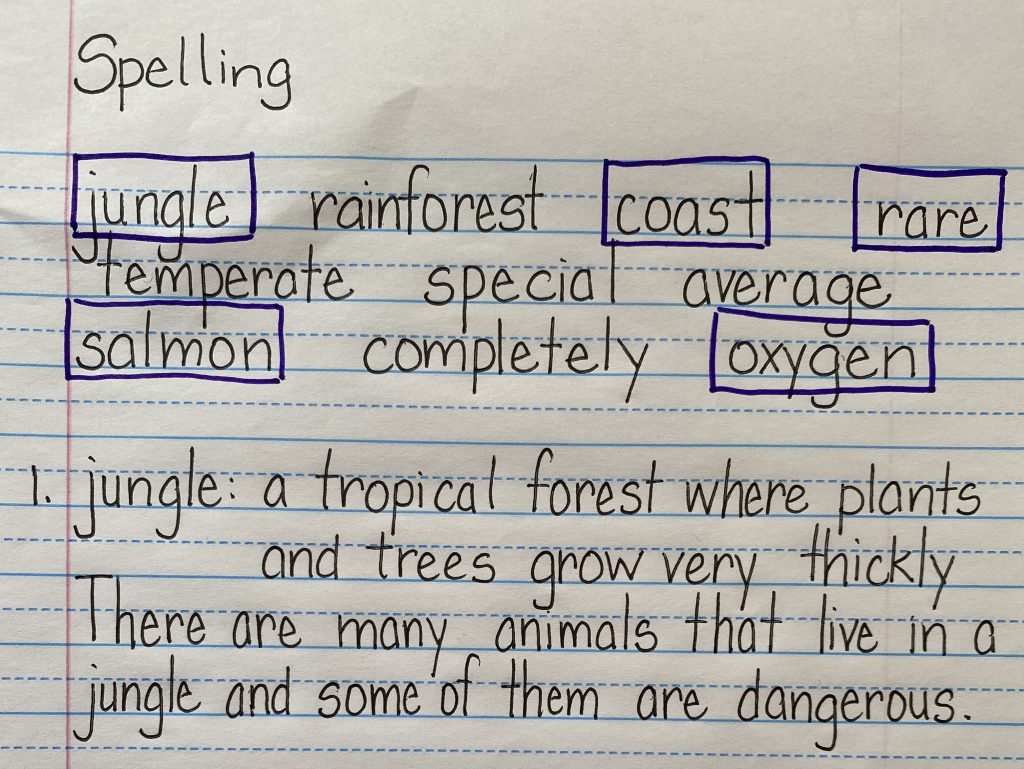 Spelling
jungle rainforest coast rare
temperate special average
salmon completely oxygen
1. jungle: a tropical forest where plants
and trees grow very thickly
There are many animals that live in a
jungle and some of them are dangerous.